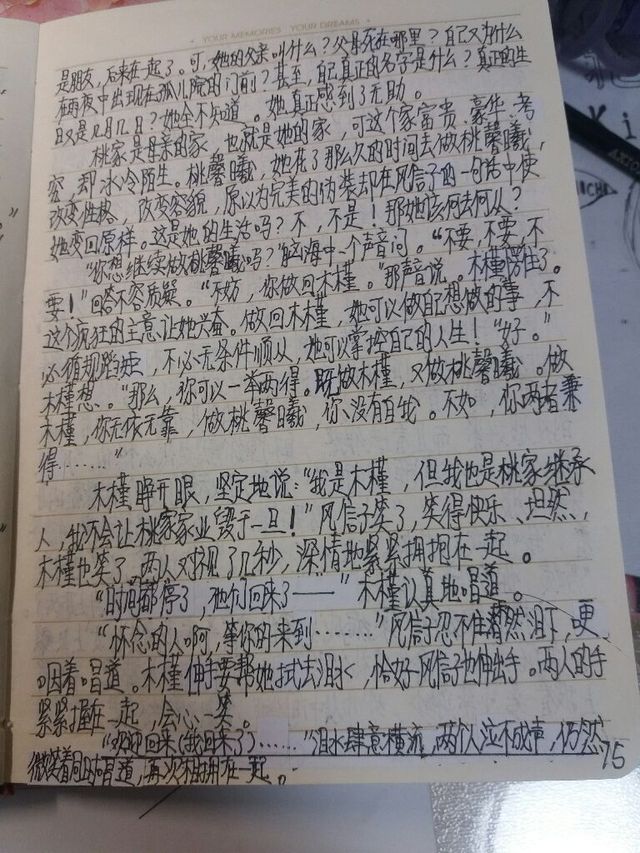 YOUR MEMORIES YOUR DREAMS
是朋友，后来在一起了。可，她的父亲叫什么？父母死在哪里？自己又为什么
在雨夜中出现在孤儿院的门前？甚至，自己真正的名字是什么？真正的生
日又是几月几日？她全不知道。她真正感到了无助。
桃家是母亲的家，也就是她的家，可这个家富贵、豪华、考
究，却冰冷陌生。桃馨曦，她花了那么久的时间去做桃馨曦，
改变性格，改变容貌，原以为完美的伪装却在风信子的一句话中使
她变回原样。这是她的生活吗？不，不是！那她该何去何从？
“你想继续做桃馨曦吗？”脑海中一个声音问。“不要，不要，不
要！”回答不容质疑。“不妨，你做回木槿。”那声说。木槿愣住了。
这个疯狂的主意让她兴奋。做回木槿，她可以做自己想做的事，不
必循规蹈矩，不必无条件顺从，她可以掌控自己的人生！“好。”
木槿想。“那么，你可以一举两得。既做木槿，又做桃馨曦。做
木槿，你无依无靠，做桃馨曦，你没有自我。不如，你两者兼
得……”
木槿睁开眼，坚定地说：“我是木槿，但我也是桃家继承
人，我不会让桃家家业毁于一旦！”风信子笑了，笑得快乐、坦然，
木槿也笑了。两人对视了几秒，深情地紧紧拥抱在一起。
“时间都停了，他们回来了——”木槿认真地唱道。
“怀念的人啊，等你的来到……”风信子忍不住潸然泪下，哽
咽着唱道。木槿伸手要帮她拭去泪水，恰好风信子也伸出手。两人的手
紧紧握在一起，会心一笑。
“欢迎回来（我回来了）……”泪水肆意横流，两个人泣不成声，仍然
微笑着同时唱道，再次相拥在一起。
75